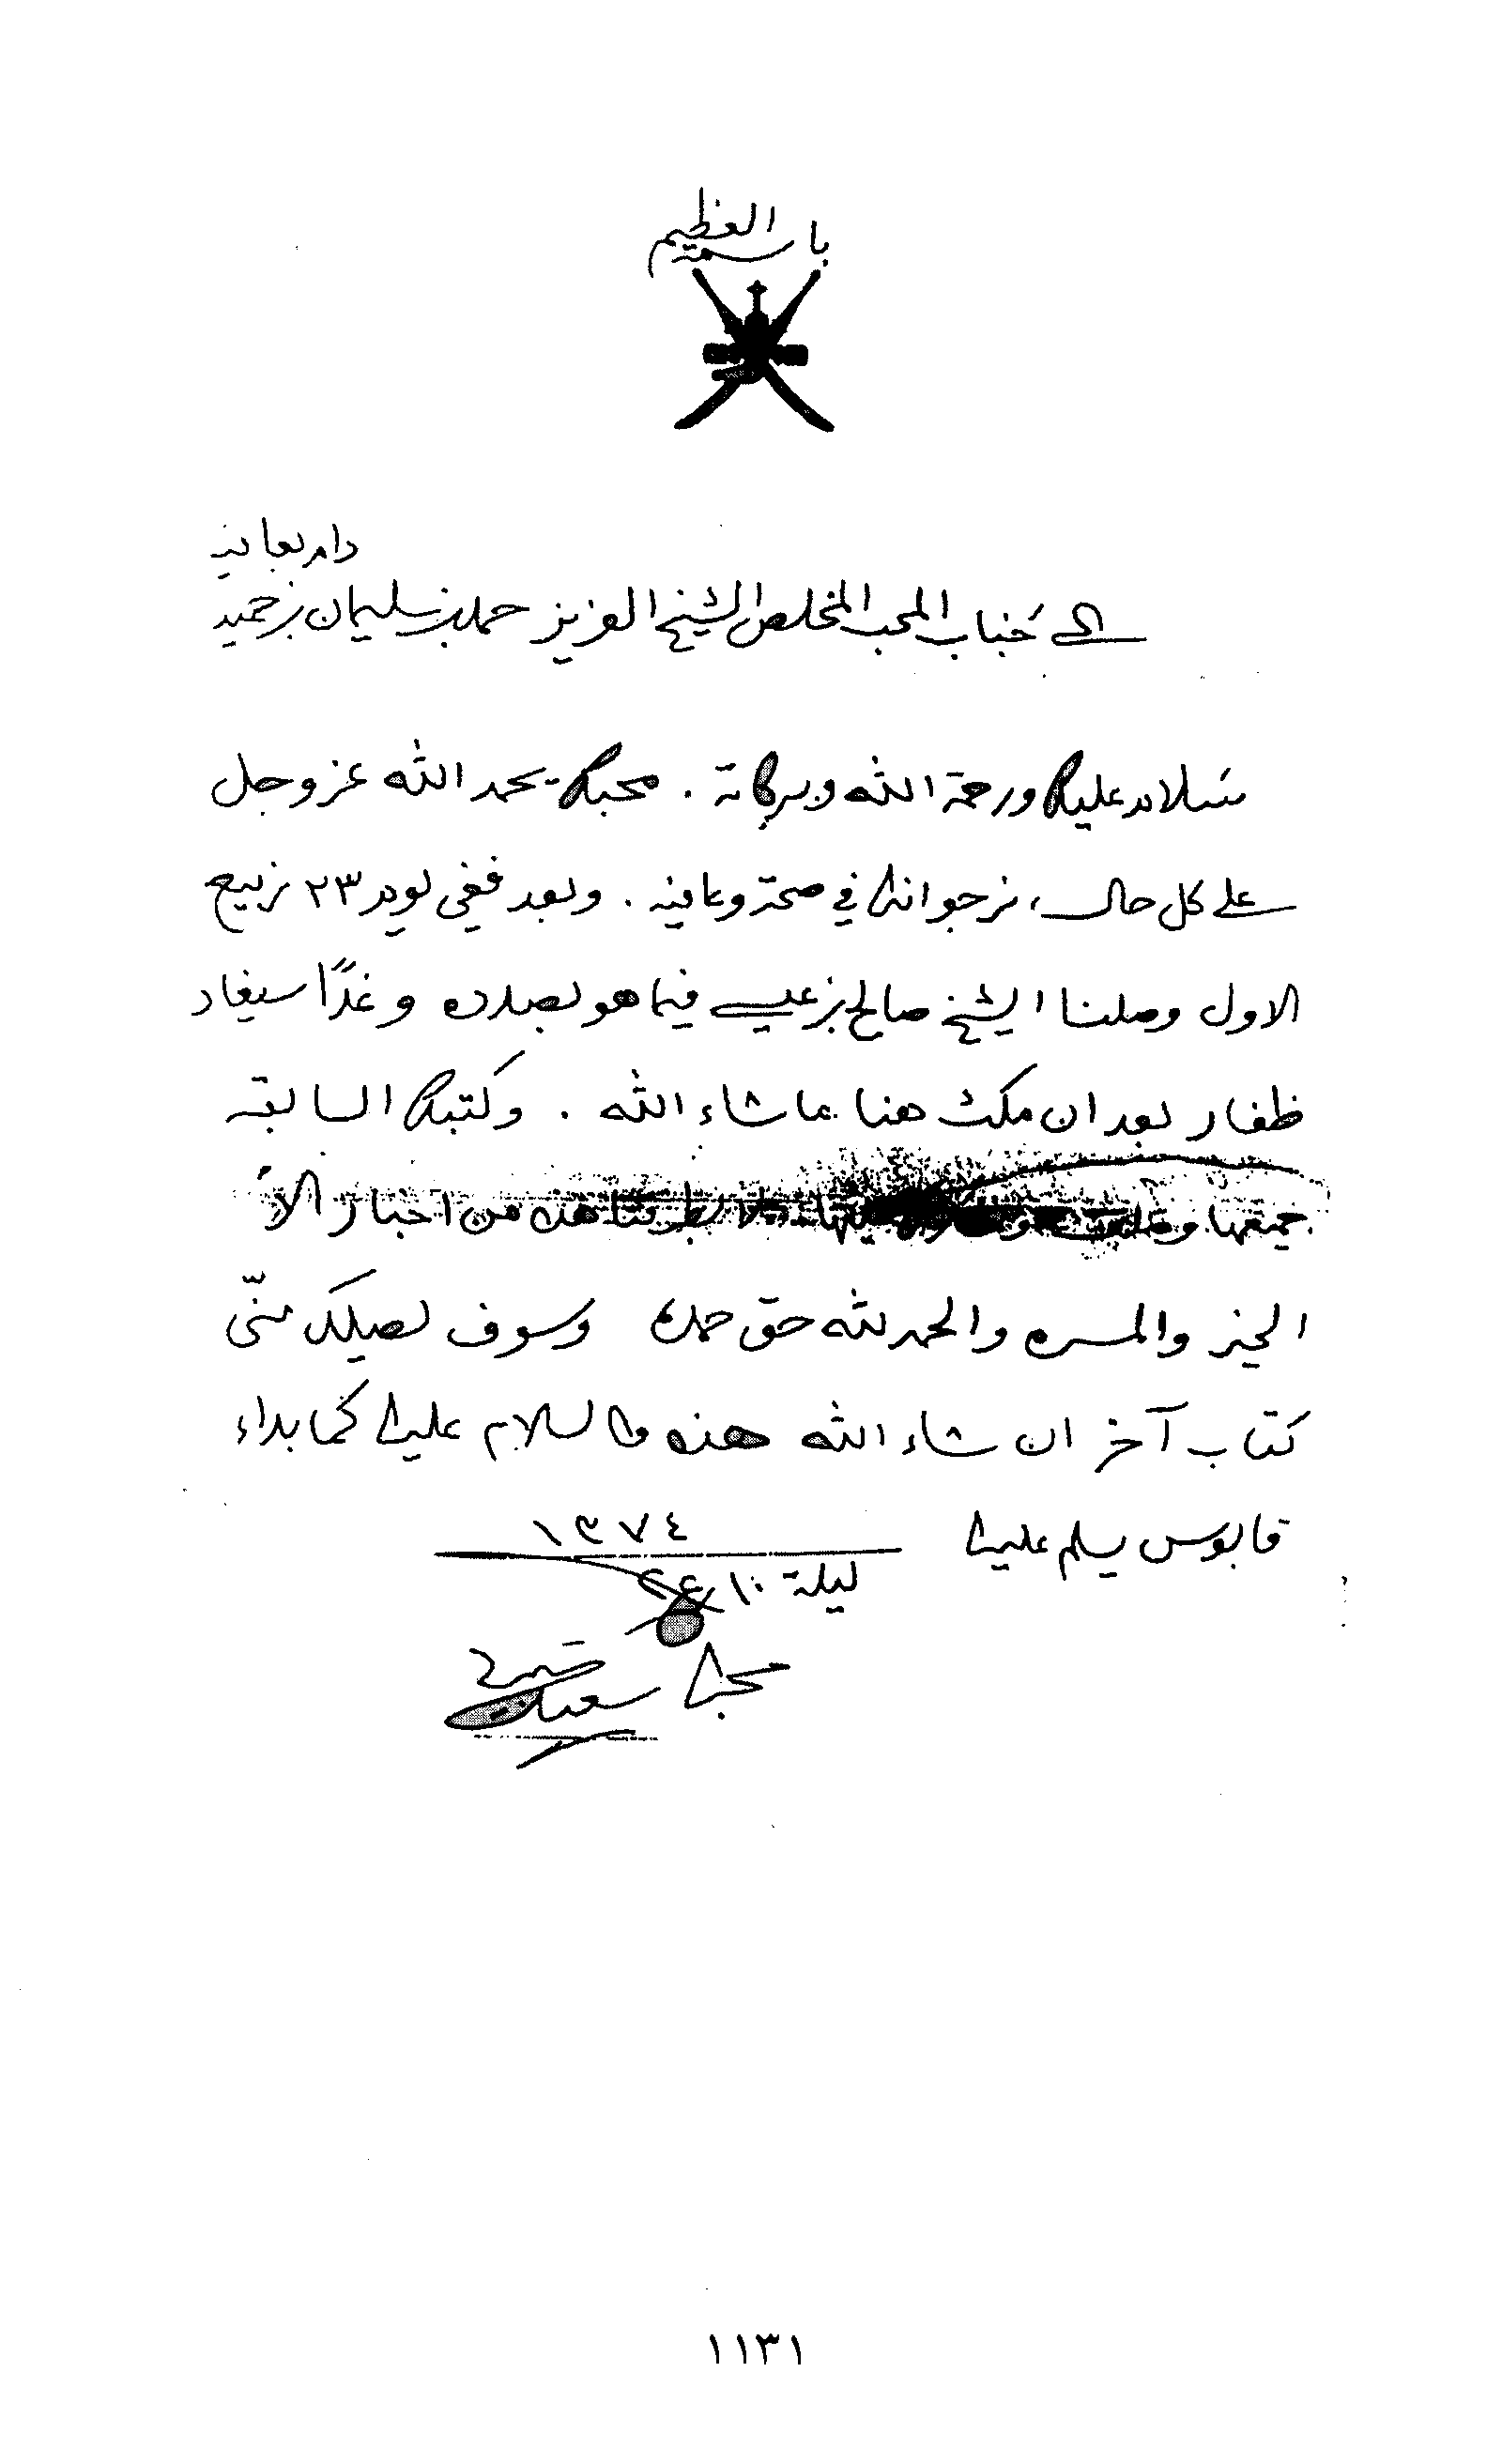 باسمه العظيم
دام بقائه
الى جناب المحب المخلص الشيخ العزيز حمد بن سليمان بن حميد
سلام عليك ورحمة الله وبركاته . محبك بحمد الله عز وجل
على كل حال، نرجو انك في صحة وعافيه . وبعد ففي يوم ٢٣ ربيع
الاول وصلنا الشيخ صالح بن عيسى فيما هو بصدده وغدًا سيغادر
ظفار بعد ان مكث هنا ما شاء الله . وكتبك السابقه
جميعها من اخبار الا
الخير والمسره والحمد لله حق حمده وسوف يصلك منّي
كتاب آخر ان شاء الله هذه والسلام عليك كما بداء
قابوس يسلم عليك
١٣٧٤
ليلة ١٠
محبك
سعيد
١١٣١